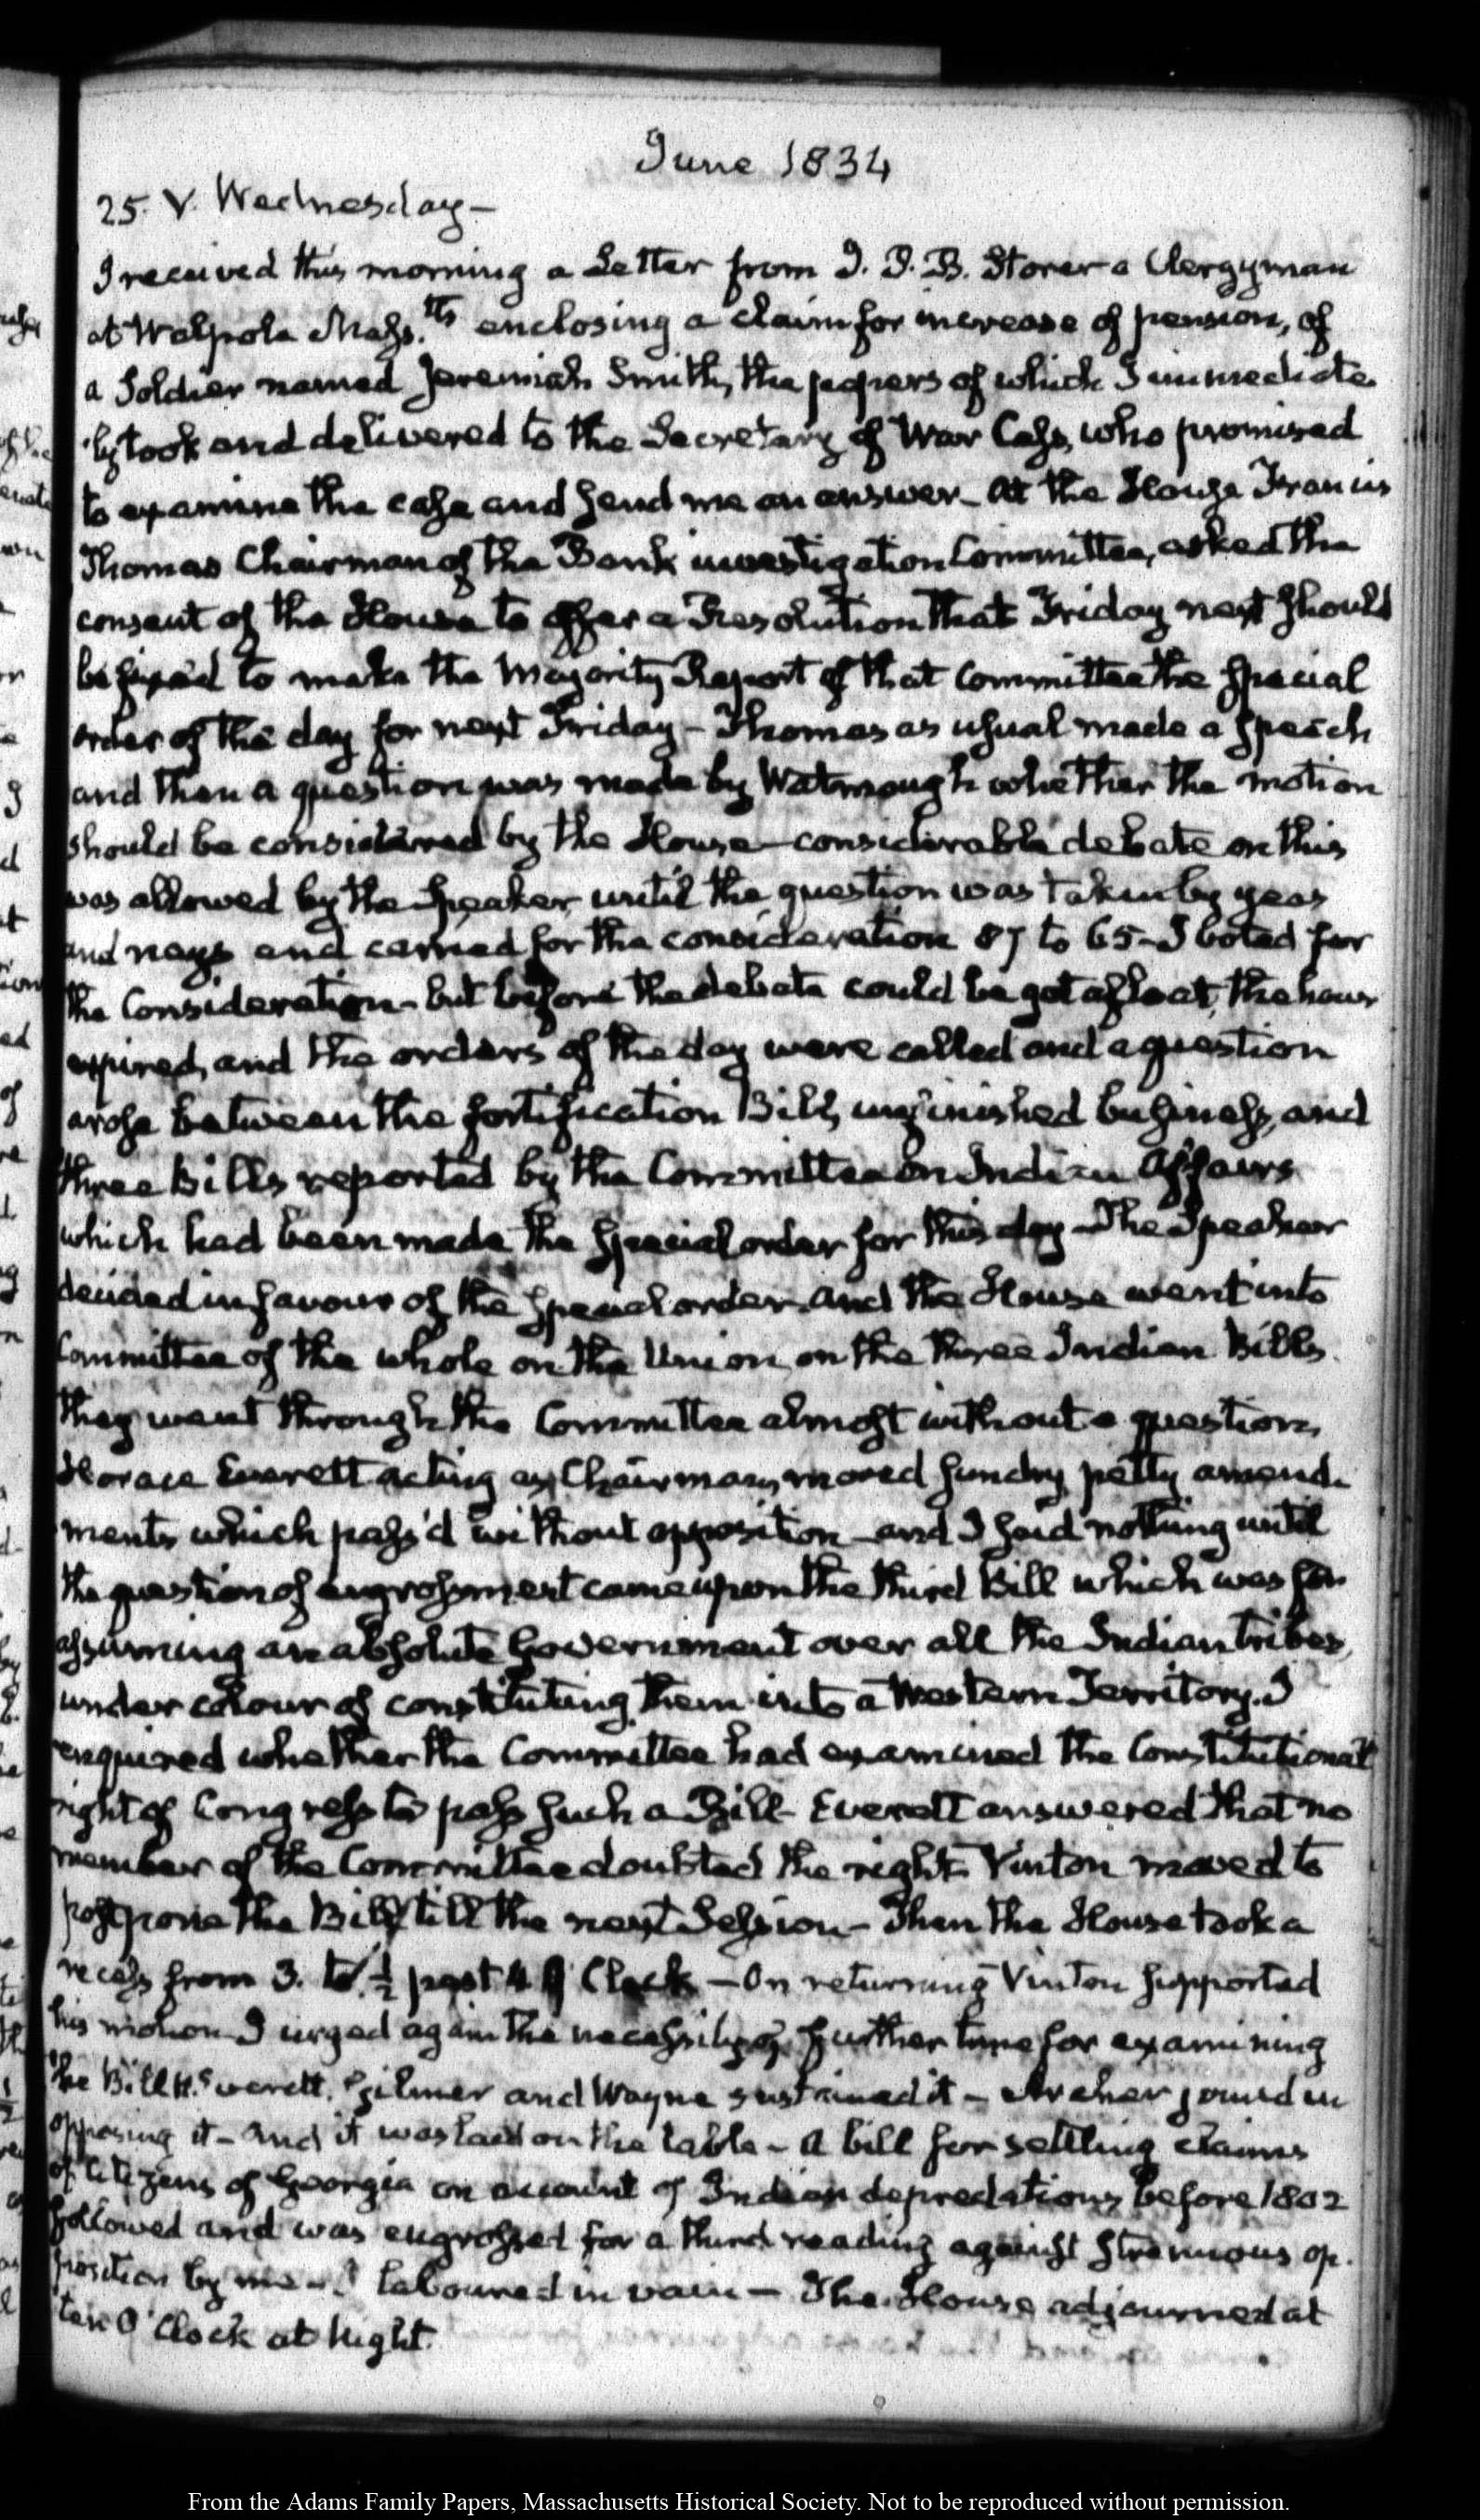 June 1834
25. V. Wednesday—
I received this morning a Letter from J. P. B. Storer a Clergyman
at Walpole Mass.tts enclosing a claim for increase of pension, of
a Soldier named Jeremiah Smith, the papers of which I immediate-
ly took and delivered to the Secretary of War Cass, who promised
to examine the case and send me an answer— At the House Francis
Thomas Chairman of the Bank investigation Committee, asked the
consent of the House to offer a Resolution that Friday next should
be fixed to make the Majority Report of that Committee the special
order of the day for next Friday— Thomas as usual made a speech
and then a question was made by Watmough whether the motion
should be considered by the House— considerable debate on this
was allowed by the Speaker until the question was taken by yeas
and nays and carried for the consideration 87 to 65— I voted for
the Consideration— but before the debate could be got afloat, the hour
expired, and the orders of the day were called and a question
arose between the fortification Bill, unfinished business, and
three Bills reported by the Committee on Indian Affairs
which had been made the special order for this day— The Speaker
decided in favour of the special order and the House went into
Committee of the whole on the Union, on the three Indian Bills.
They went through the Committee almost without a question,
Horace Everett acting as Chairman, moved sundry petty amend-
ments which pass'd without opposition— and I said nothing until
the question of engrossment came upon the third Bill which was for
assuming an absolute Government over all the Indian tribes,
under colour of constituting them into a Western Territory. I
enquired whether the Committee had examined the Constitutional
right of Congress to pass such a Bill— Everett answered that no
member of the Committee doubted the right— Vinton moved to
postpone the Bill till the next Session— Then the House took a
recess from 3. to ½ past 4. O'Clock— On returning Vinton supported
his motion I urged again the necessity of further time for examining
the Bill H. Everett, Gilmer and Wayne sustained it— Archer joined in
opposing it— and it was laid on the table— A bill for settling claims
of Citizens of Georgia on account of Indian depredations before 1802
followed and was engrossed for a third reading against strenuous op-
position by me— I laboured in vain— The House adjourned at
ten O'Clock at Night.
From the Adams Family Papers, Massachusetts Historical Society. Not to be reproduced without permission.